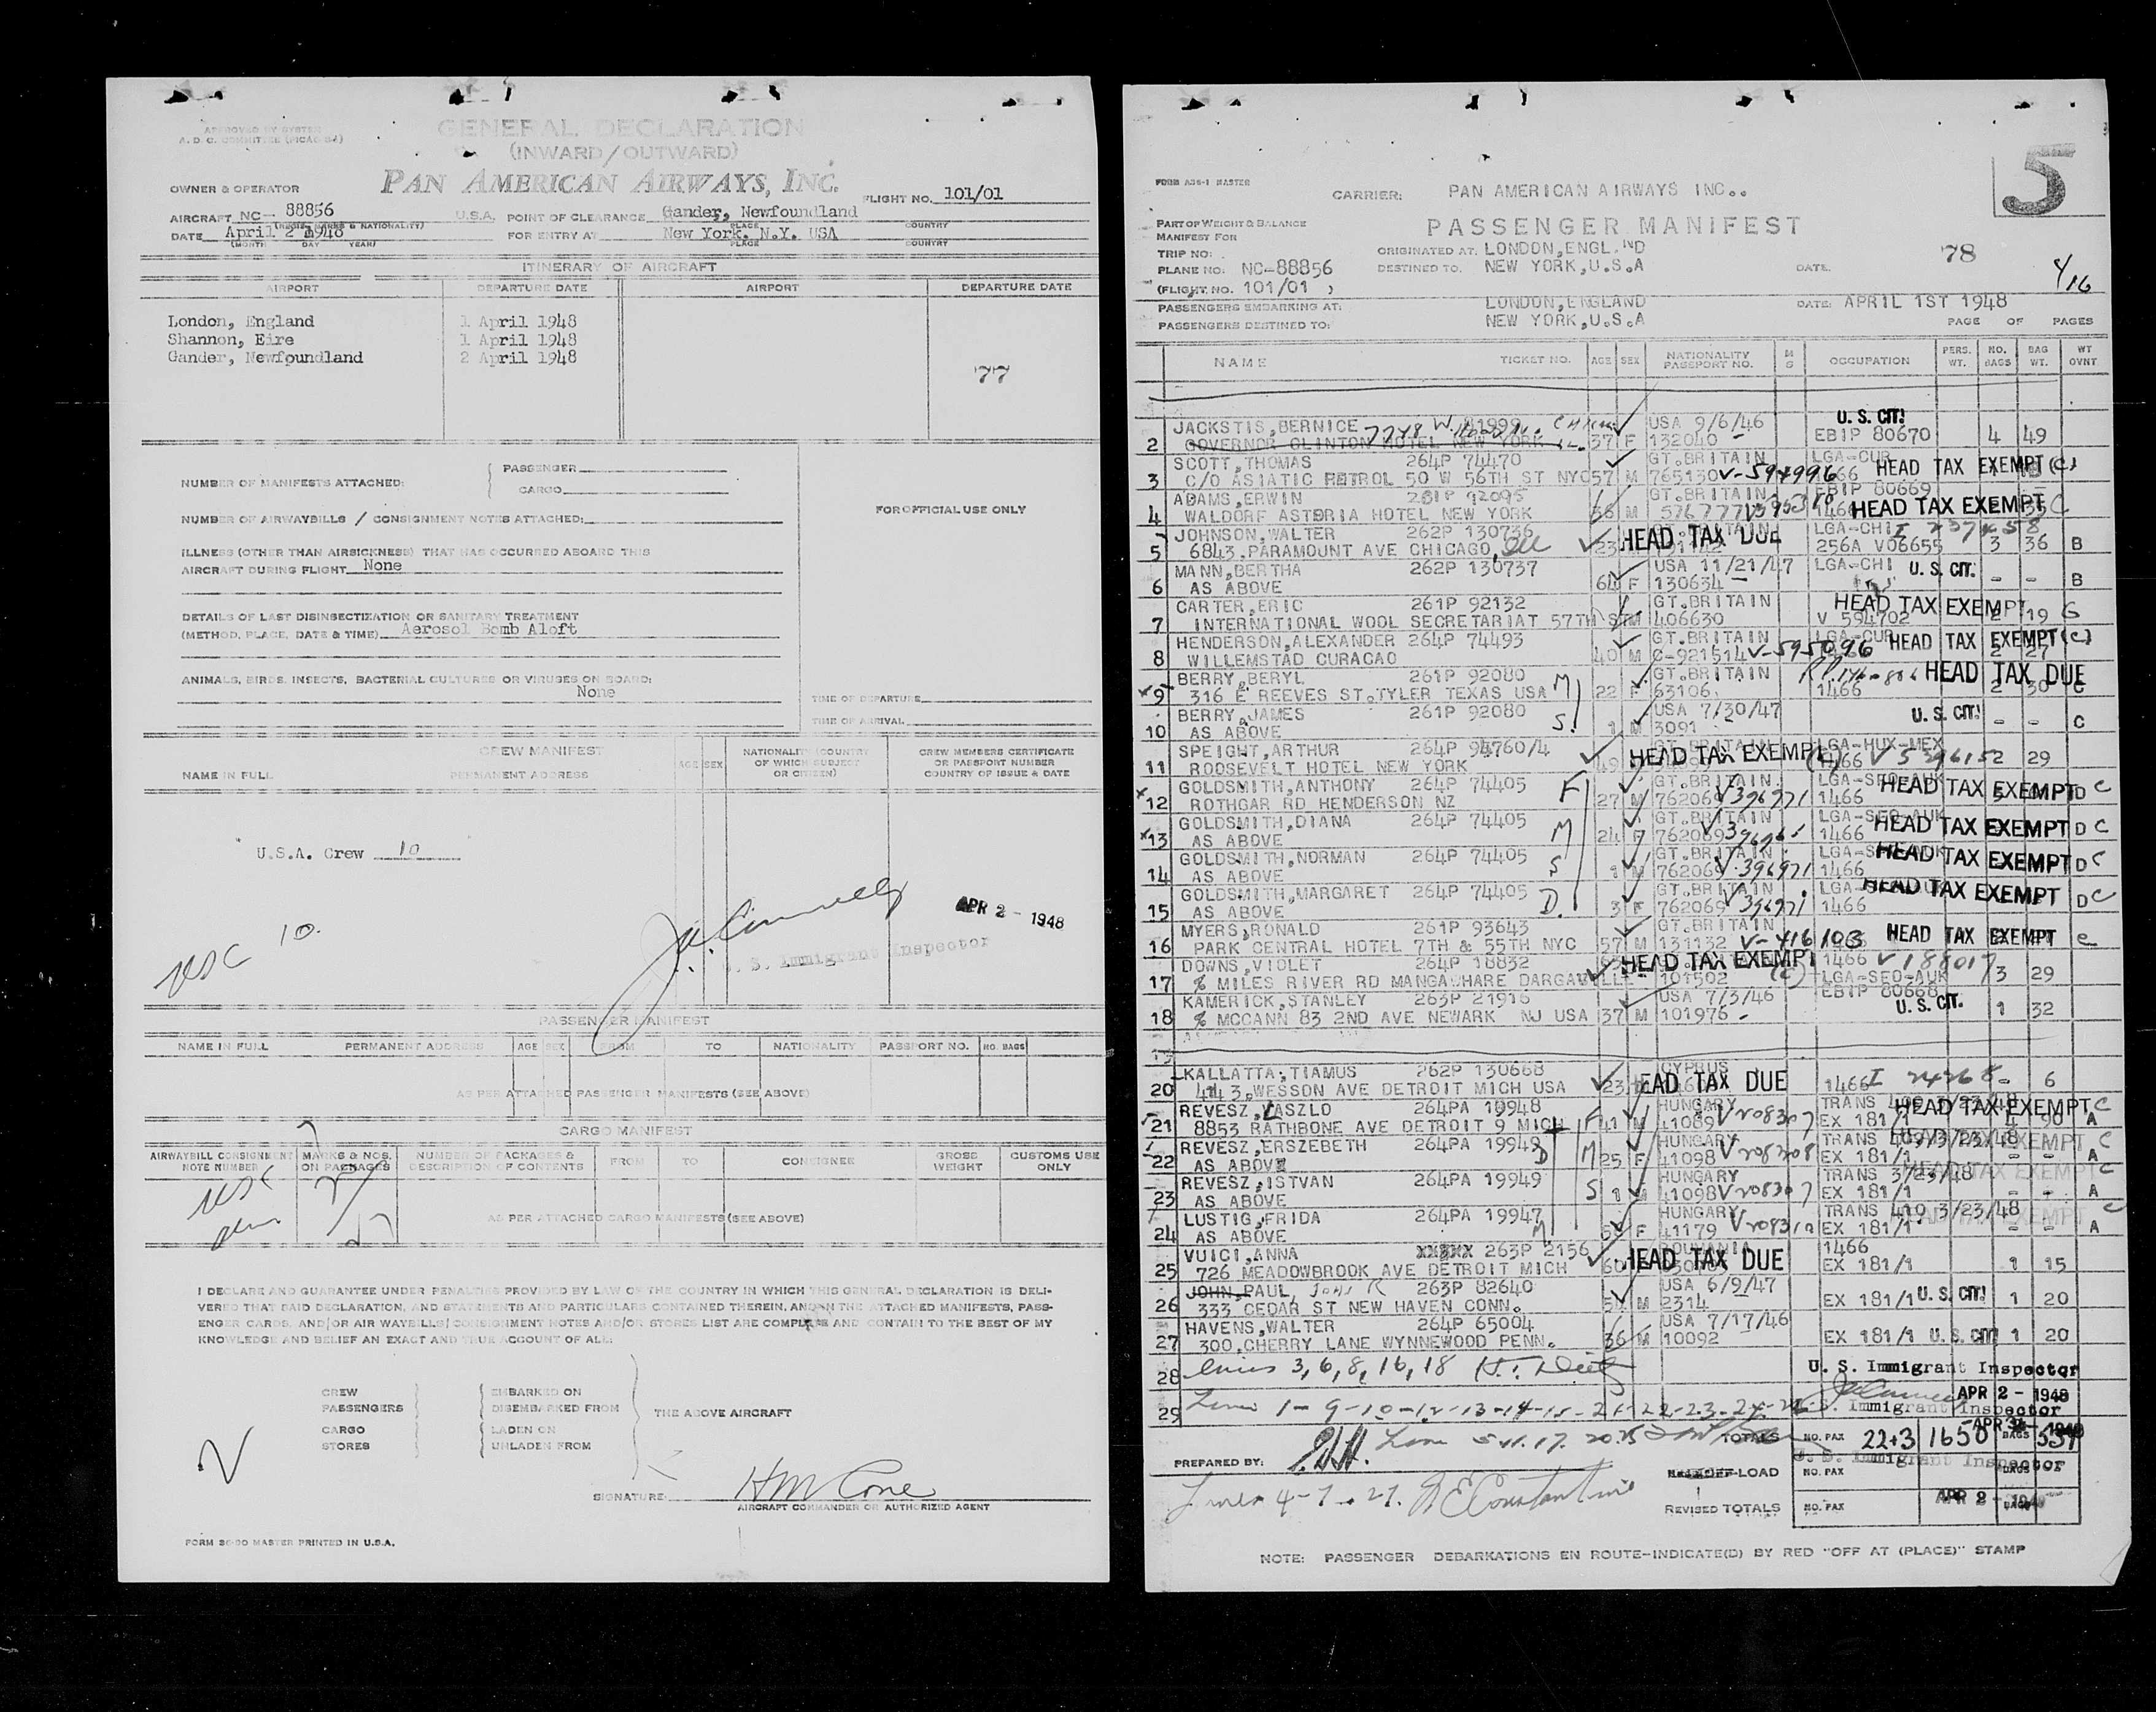 APPROVED BY SYSTEM
A. D. C. COMMITTEE (PICAO 84)
GENERAL DECLARATION
(INWARD/OUTWARD)
PAN AMERICAN AIRWAYS, INC.
OWNER & OPERATOR
FLIGHT NO. 101/01
AIRCRAFT NC- 88856 U.S.A. POINT OF CLEARANCE Gander, Newfoundland
DATE April 2 1948 FOR ENTRY AT New York. N.Y. USA
(MONTH DAY YEAR) PLACE COUNTRY
ITINERARY OF AIRCRAFT
AIRPORT DEPARTURE DATE AIRPORT DEPARTURE DATE
London, England 1 April 1948
Shannon, Eire 1 April 1948
Gander, Newfoundland 2 April 1948
77
NUMBER OF MANIFESTS ATTACHED: PASSENGER
CARGO
NUMBER OF AIRWAYBILLS / CONSIGNMENT NOTES ATTACHED:
FOR OFFICIAL USE ONLY
ILLNESS (OTHER THAN AIRSICKNESS) THAT HAS OCCURRED ABOARD THIS
AIRCRAFT DURING FLIGHT None
DETAILS OF LAST DISINSECTIZATION OR SANITARY TREATMENT
(METHOD, PLACE, DATE & TIME) Aerosol Bomb Aloft
ANIMALS, BIRDS, INSECTS, BACTERIAL CULTURES OR VIRUSES ON BOARD:
None
TIME OF DEPARTURE
TIME OF ARRIVAL
CREW MANIFEST
NAME IN FULL PERMANENT ADDRESS AGE SEX NATIONALITY (COUNTRY OF WHICH SUBJECT OR CITIZEN) CREW MEMBERS CERTIFICATE OR PASSPORT NUMBER COUNTRY OF ISSUE & DATE
U.S.A. Crew 10
APR 2 - 1948
U. S. Immigrant Inspector
USC 10.
PASSENGER MANIFEST
NAME IN FULL PERMANENT ADDRESS AGE SEX FROM TO NATIONALITY PASSPORT NO. NO. BAGS
AS PER ATTACHED PASSENGER MANIFESTS (SEE ABOVE)
CARGO MANIFEST
AIRWAYBILL CONSIGNMENT NOTE NUMBER MARKS & NOS. ON PACKAGES NUMBER OF PACKAGES & DESCRIPTION OF CONTENTS FROM TO CONSIGNEE GROSS WEIGHT CUSTOMS USE ONLY
AS PER ATTACHED CARGO MANIFESTS (SEE ABOVE)
I DECLARE AND GUARANTEE UNDER PENALTIES PROVIDED BY LAW OF THE COUNTRY IN WHICH THIS GENERAL DECLARATION IS DELI-
VERED THAT SAID DECLARATION, AND STATEMENTS AND PARTICULARS CONTAINED THEREIN, AND IN THE ATTACHED MANIFESTS, PASS-
ENGER CARDS, AND/OR AIR WAYBILLS/CONSIGNMENT NOTES AND/OR STORES LIST ARE COMPLETE AND CONTAIN TO THE BEST OF MY
KNOWLEDGE AND BELIEF AN EXACT AND TRUE ACCOUNT OF ALL:
CREW EMBARKED ON
PASSENGERS DISEMBARKED FROM THE ABOVE AIRCRAFT
CARGO LADEN ON
STORES UNLADEN FROM
SIGNATURE: HM Cone
AIRCRAFT COMMANDER OR AUTHORIZED AGENT
FORM 36-90 MASTER PRINTED IN U.S.A.
FORM A36-1 MASTER
5
CARRIER: PAN AMERICAN AIRWAYS INC..
PART OF WEIGHT & BALANCE
MANIFEST FOR
PASSENGER MANIFEST
TRIP NO: ORIGINATED AT. LONDON, ENGL.ND
PLANE NO: NC-88856 DESTINED TO. NEW YORK, U.S.A DATE. 78
(FLIGHT NO. 101/01 )
4/16
PASSENGERS EMBARKING AT: LONDON, ENGLAND DATE: APRIL 1ST 1948
PASSENGERS DESTINED TO: NEW YORK, U.S.A PAGE OF PAGES
NAME TICKET NO. AGE SEX NATIONALITY PASSPORT NO. M S OCCUPATION PERS. WT. NO. BAGS BAG WT. WT OVNT
JACKSTIS, BERNICE 81999 USA 9/6/46 U. S. CIT!
2 GOVERNOR CLINTON HOTEL NEW YORK 37 F 132040 EBIP 80670 4 49
SCOTT, THOMAS 264P 74470 GT.BRITAIN LGA-CUR
3 C/O ASIATIC PETROL 50 W 56TH ST NYC 57 M 765130 V-594996 HEAD TAX EXEMPT (C)
ADAMS, ERWIN 261P 92095 GT.BRITAIN EBIP 80669
4 WALDORF ASTORIA HOTEL NEW YORK 56 M HEAD TAX EXEMPT C
JOHNSON, WALTER 262P 130736 LGA-CHI
5 6843, PARAMOUNT AVE CHICAGO, Ill 23 HEAD TAX DUE 256A V06655 3 36 B
MANN, BERTHA 262P 130737 USA 11/21/47 LGA-CHI U. S. CIT.
6 AS ABOVE 64 F 130634 - - B
CARTER, ERIC 261P 92132 GT.BRITAIN HEAD TAX EXEMPT
7 INTERNATIONAL WOOL SECRETARIAT 57TH ST M 406630 V 594702 2 19 G
HENDERSON, ALEXANDER 264P 74493 GT.BRITAIN LGA-CUR HEAD TAX EXEMPT (C)
8 WILLEMSTAD CURACAO 40 M C-921514 V-595096 2 27
BERRY, BERYL 261P 92080 GT.BRITAIN HEAD TAX DUE
9 316 E REEVES ST. TYLER TEXAS USA M 22 F 63106. 1466 2 30 C
BERRY, JAMES 261P 92080 USA 7/30/47 U. S. CIT!
10 AS ABOVE S. 1 M 3091 - - C
SPEIGHT, ARTHUR 264P 94760/4 HEAD TAX EXEMPT LGA-HUX-MEX
11 ROOSEVELT HOTEL NEW YORK 49 1466 2 29
GOLDSMITH, ANTHONY 264P 74405 GT.BRITAIN LGA-SFO-AUK HEAD TAX EXEMPT
12 ROTHGAR RD HENDERSON NZ F 27 M 762069 V396971 1466 D C
GOLDSMITH, DIANA 264P 74405 GT.BRITAIN LGA-SFO-AUK HEAD TAX EXEMPT
13 AS ABOVE M 24 F 762069 1466 D C
GOLDSMITH, NORMAN 264P 74405 GT.BRITAIN HEAD TAX EXEMPT
14 AS ABOVE S 1 M 762069 V 396971 1466 D C
GOLDSMITH, MARGARET 264P 74405 GT.BRITAIN HEAD TAX EXEMPT
15 AS ABOVE D. 3 F 762069 V 396971 1466 D C
MYERS, RONALD 261P 93643 GT.BRITAIN
16 PARK CENTRAL HOTEL 7TH & 55TH NYC 57 M 131132 V-416103 HEAD TAX EXEMPT
DOWNS, VIOLET 264P 18832 HEAD TAX EXEMPT 1466 V188017
17 % MILES RIVER RD MANGAWHARE 101502 (C) LGA-SFO-AUK 3 29
KAMERICK, STANLEY 263P 21916 USA 7/3/46 EBIP 80668 U. S. CIT.
18 % MCCANN 83 2ND AVE NEWARK NJ USA 37 M 101976 1 32
KALLATTA, TIAMUS 262P 130668 CYPRUS
20 4443, WESSON AVE DETROIT MICH USA 23 HEAD TAX DUE 1466 6
REVESZ, LASZLO 264PA 19948 HUNGARY HEAD TAX EXEMPT C
21 8853 RATHBONE AVE DETROIT 9 MICH F 41 M 41089 V208307 EX 181/1 4 90 A
REVESZ, ERSZEBETH 264PA 19949 HUNGARY TRANS 409/3/23/48 C
22 AS ABOVE M 25 F 41098 V208308 EX 181/1 - - A
REVESZ, ISTVAN 264PA 19949 HUNGARY TRANS 3/23/48 HEAD TAX EXEMPT C
23 AS ABOVE S 1 M 41098 V208307 EX 181/1 - - A
LUSTIG, FRIDA 264PA 19947 HUNGARY TRANS 419 3/23/48 C
24 AS ABOVE M F 41179 EX 181/1 - - A
VUICI, ANNA 263P 2156 HEAD TAX DUE 1466
25 726 MEADOWBROOK AVE DETROIT MICH 60 EX 181/1 1 15
JOHN, PAUL, John R 263P 82640 USA 6/9/47
26 333 CEDAR ST NEW HAVEN CONN. M 2314 EX 181/1 U. S. CIT! 1 20
HAVENS, WALTER 264P 65004 USA 7/17/46
27 300, CHERRY LANE WYNNEWOOD PENN. 36 M 10092 EX 181/1 U. S. CIT 1 20
28 Lines 3, 6, 8, 16, 18
U. S. Immigrant Inspector
APR 2 - 1948
29 Lines 1-9-10-12-13-14-15-21-22-23-24-26
U. S. Immigrant Inspector
TOTALS NO. PAX 22+3 1650 BAGS 537
PREPARED BY:
U. S. Immigrant Inspector
OFF-LOAD NO. PAX BAGS
Lines 4-7-27. N E Constantine
APR 2 - 1948
REVISED TOTALS NO. PAX BAGS
NOTE: PASSENGER DEBARKATIONS EN ROUTE-INDICATE(D) BY RED "OFF AT (PLACE)" STAMP